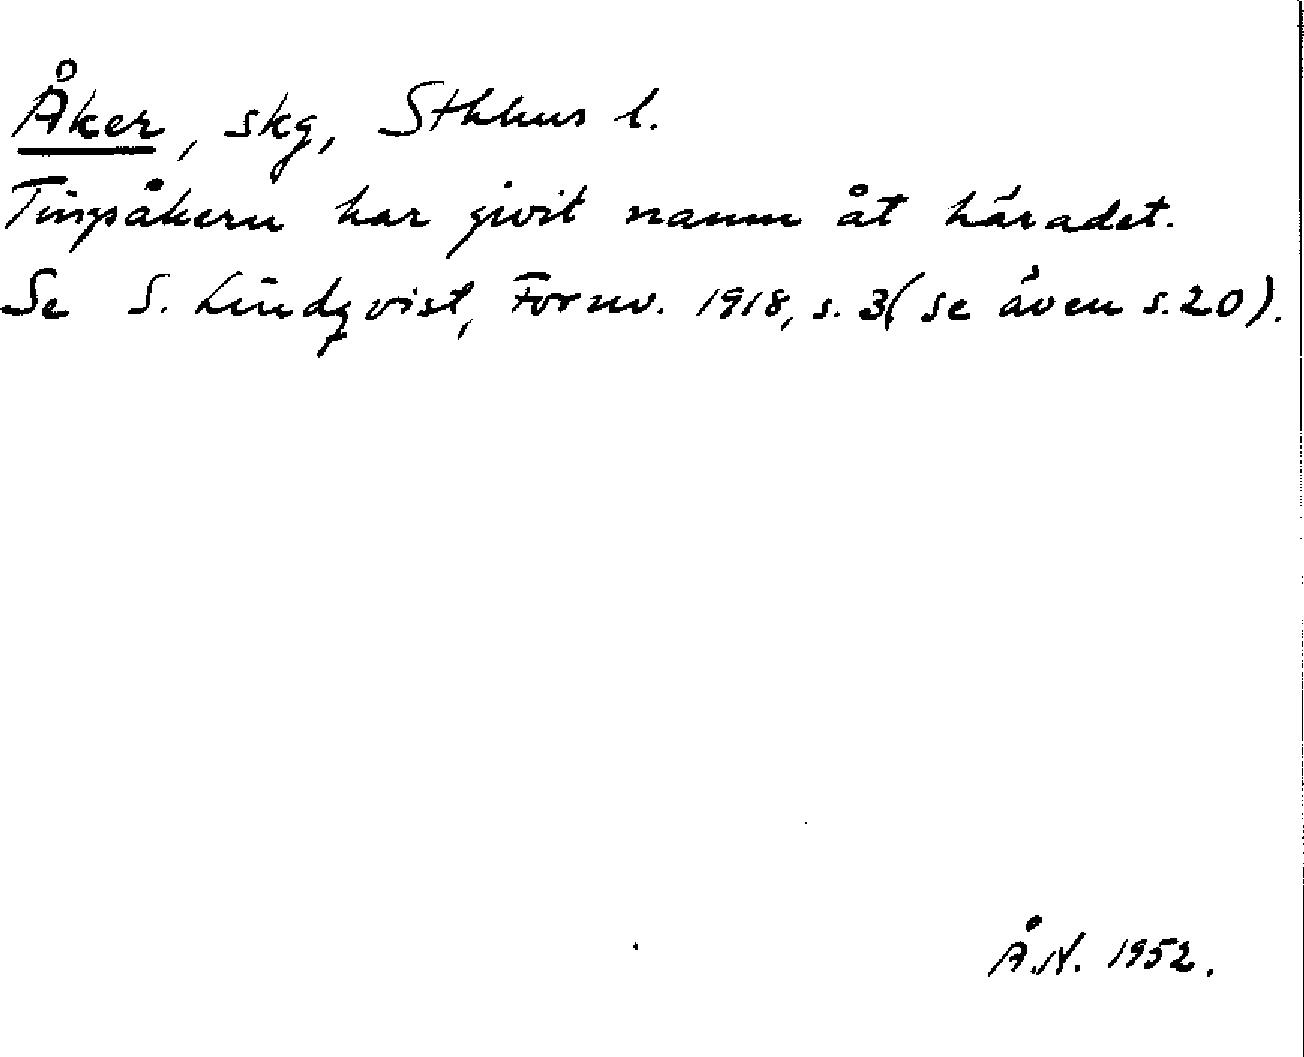 Åker, skg, Sthlms l.
Tingsåkern har givit namn åt häradet.
Se S. Lindqvist, Fornv. 1918, s. 3 (se även s. 20).
Å.N. 1952.